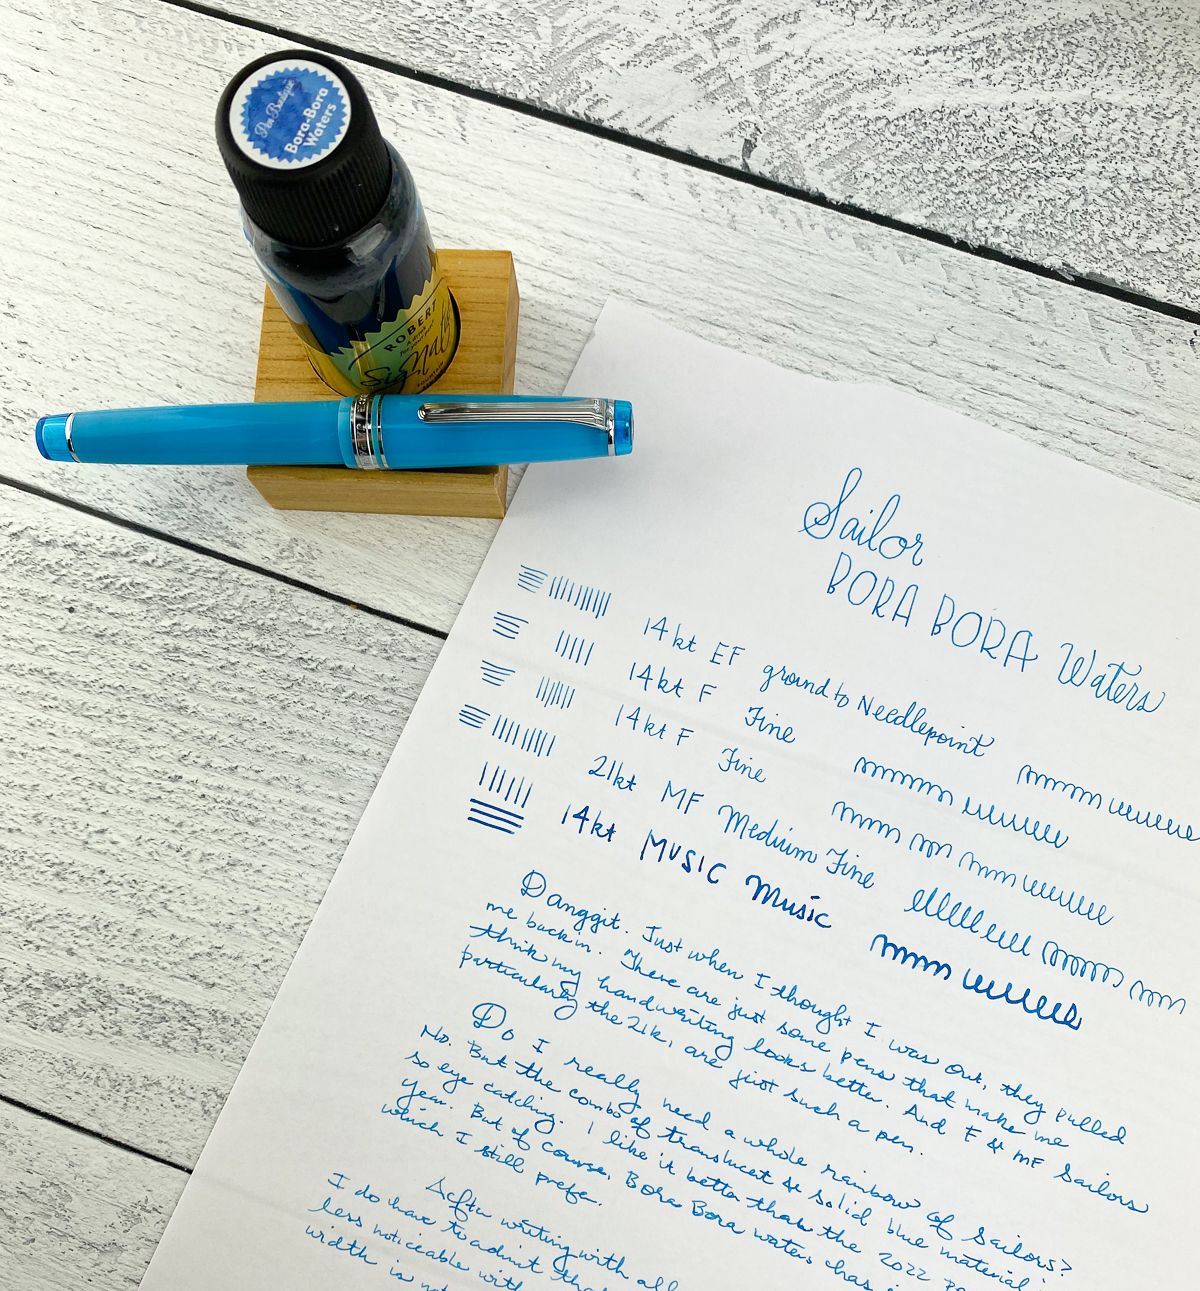 Pen Boutique
Bora-Bora
Waters
ROBERT
Signat
Sailor
BORA BORA Waters
14kt EF ground to Needlepoint
14kt F Fine
14kt F Fine
21kt MF Medium Fine
14kt MUSIC Music
Danggit. Just when I thought I was out, they pulled
me back in. There are just some pens that make me
think my handwriting looks better. And F & MF Sailors
particularly the 21k, are just such a pen.
Do I really need a whole rainbow of Sailors?
No. But the combo of translucent & solid blue material
so eye catching. I like it better than the 2022
year. But of course, Bora Bora waters has
which I still prefer.
After writing with all
I do have to admit that
less noticeable with
width is not